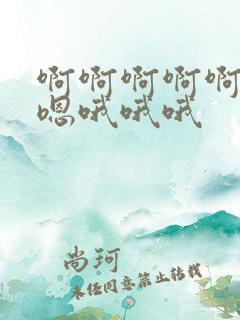 啊啊啊啊啊
嗯哦哦哦
尚珂
未经同意禁止转载